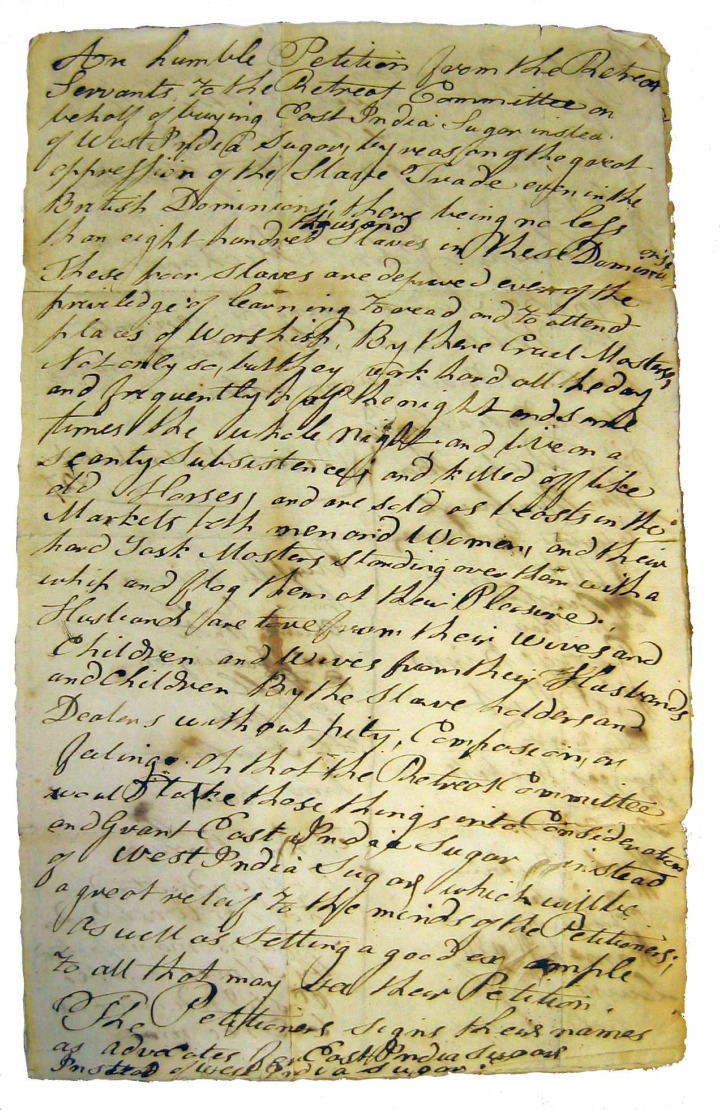 An humble Petition from the Retreat
Servants to the Retreat Committee on
behalf of buying East India Sugar instea
of West India Sugar, by reason of the great
oppression of the Slave Trade even in the
British Dominions; there being no less
than eight hundred thousand Slaves in these Dominions
These poor Slaves are deprived even of the
priviledge of learning to read and to attend
places of Worship, By there Cruel Masters,
Not only so, but they work hard all the day
and frequently half the night and some
times the whole night and live on a
scanty Subsistence, and killed off like
old Horses, and are sold as beasts in the
Markets both men and Women, and their
hard Task Masters standing over them with a
whip and flog them at their Pleasure.
Husbands are tore from their wives and
Children and Wives from their Husbands
and Children By the Slave holders and
Dealers without pity, Compasion, or
feeling. Oh that the Retreat Committee
would take those things into Consideration
and Grant East India Sugar instead
of West India Sugar, which will be
a great releif to the minds of the Petitioners;
as well as setting a good example
to all that may their Petition
The Petitioners signs their names
as advocates for East India Sugar
Instead of West India Sugar.